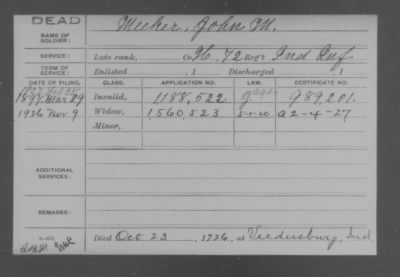 DEAD
NAME OF SOLDIER: Meeker, John M.
SERVICE: Late rank, Co. H, 72 Ind Inf
TERM OF SERVICE: Enlisted , 1 Discharged , 1
DATE OF FILING. CLASS. APPLICATION NO. LAW. CERTIFICATE NO.
1897 Mar 29 Invalid, 1188,522 989,201
1926 Nov 9 Widow, 1,560,523 5-1-20 A 2-4-27
Minor,
ADDITIONAL SERVICES:
REMARKS:
Died Oct 23 , 1926, at Veedersburg, Ind.